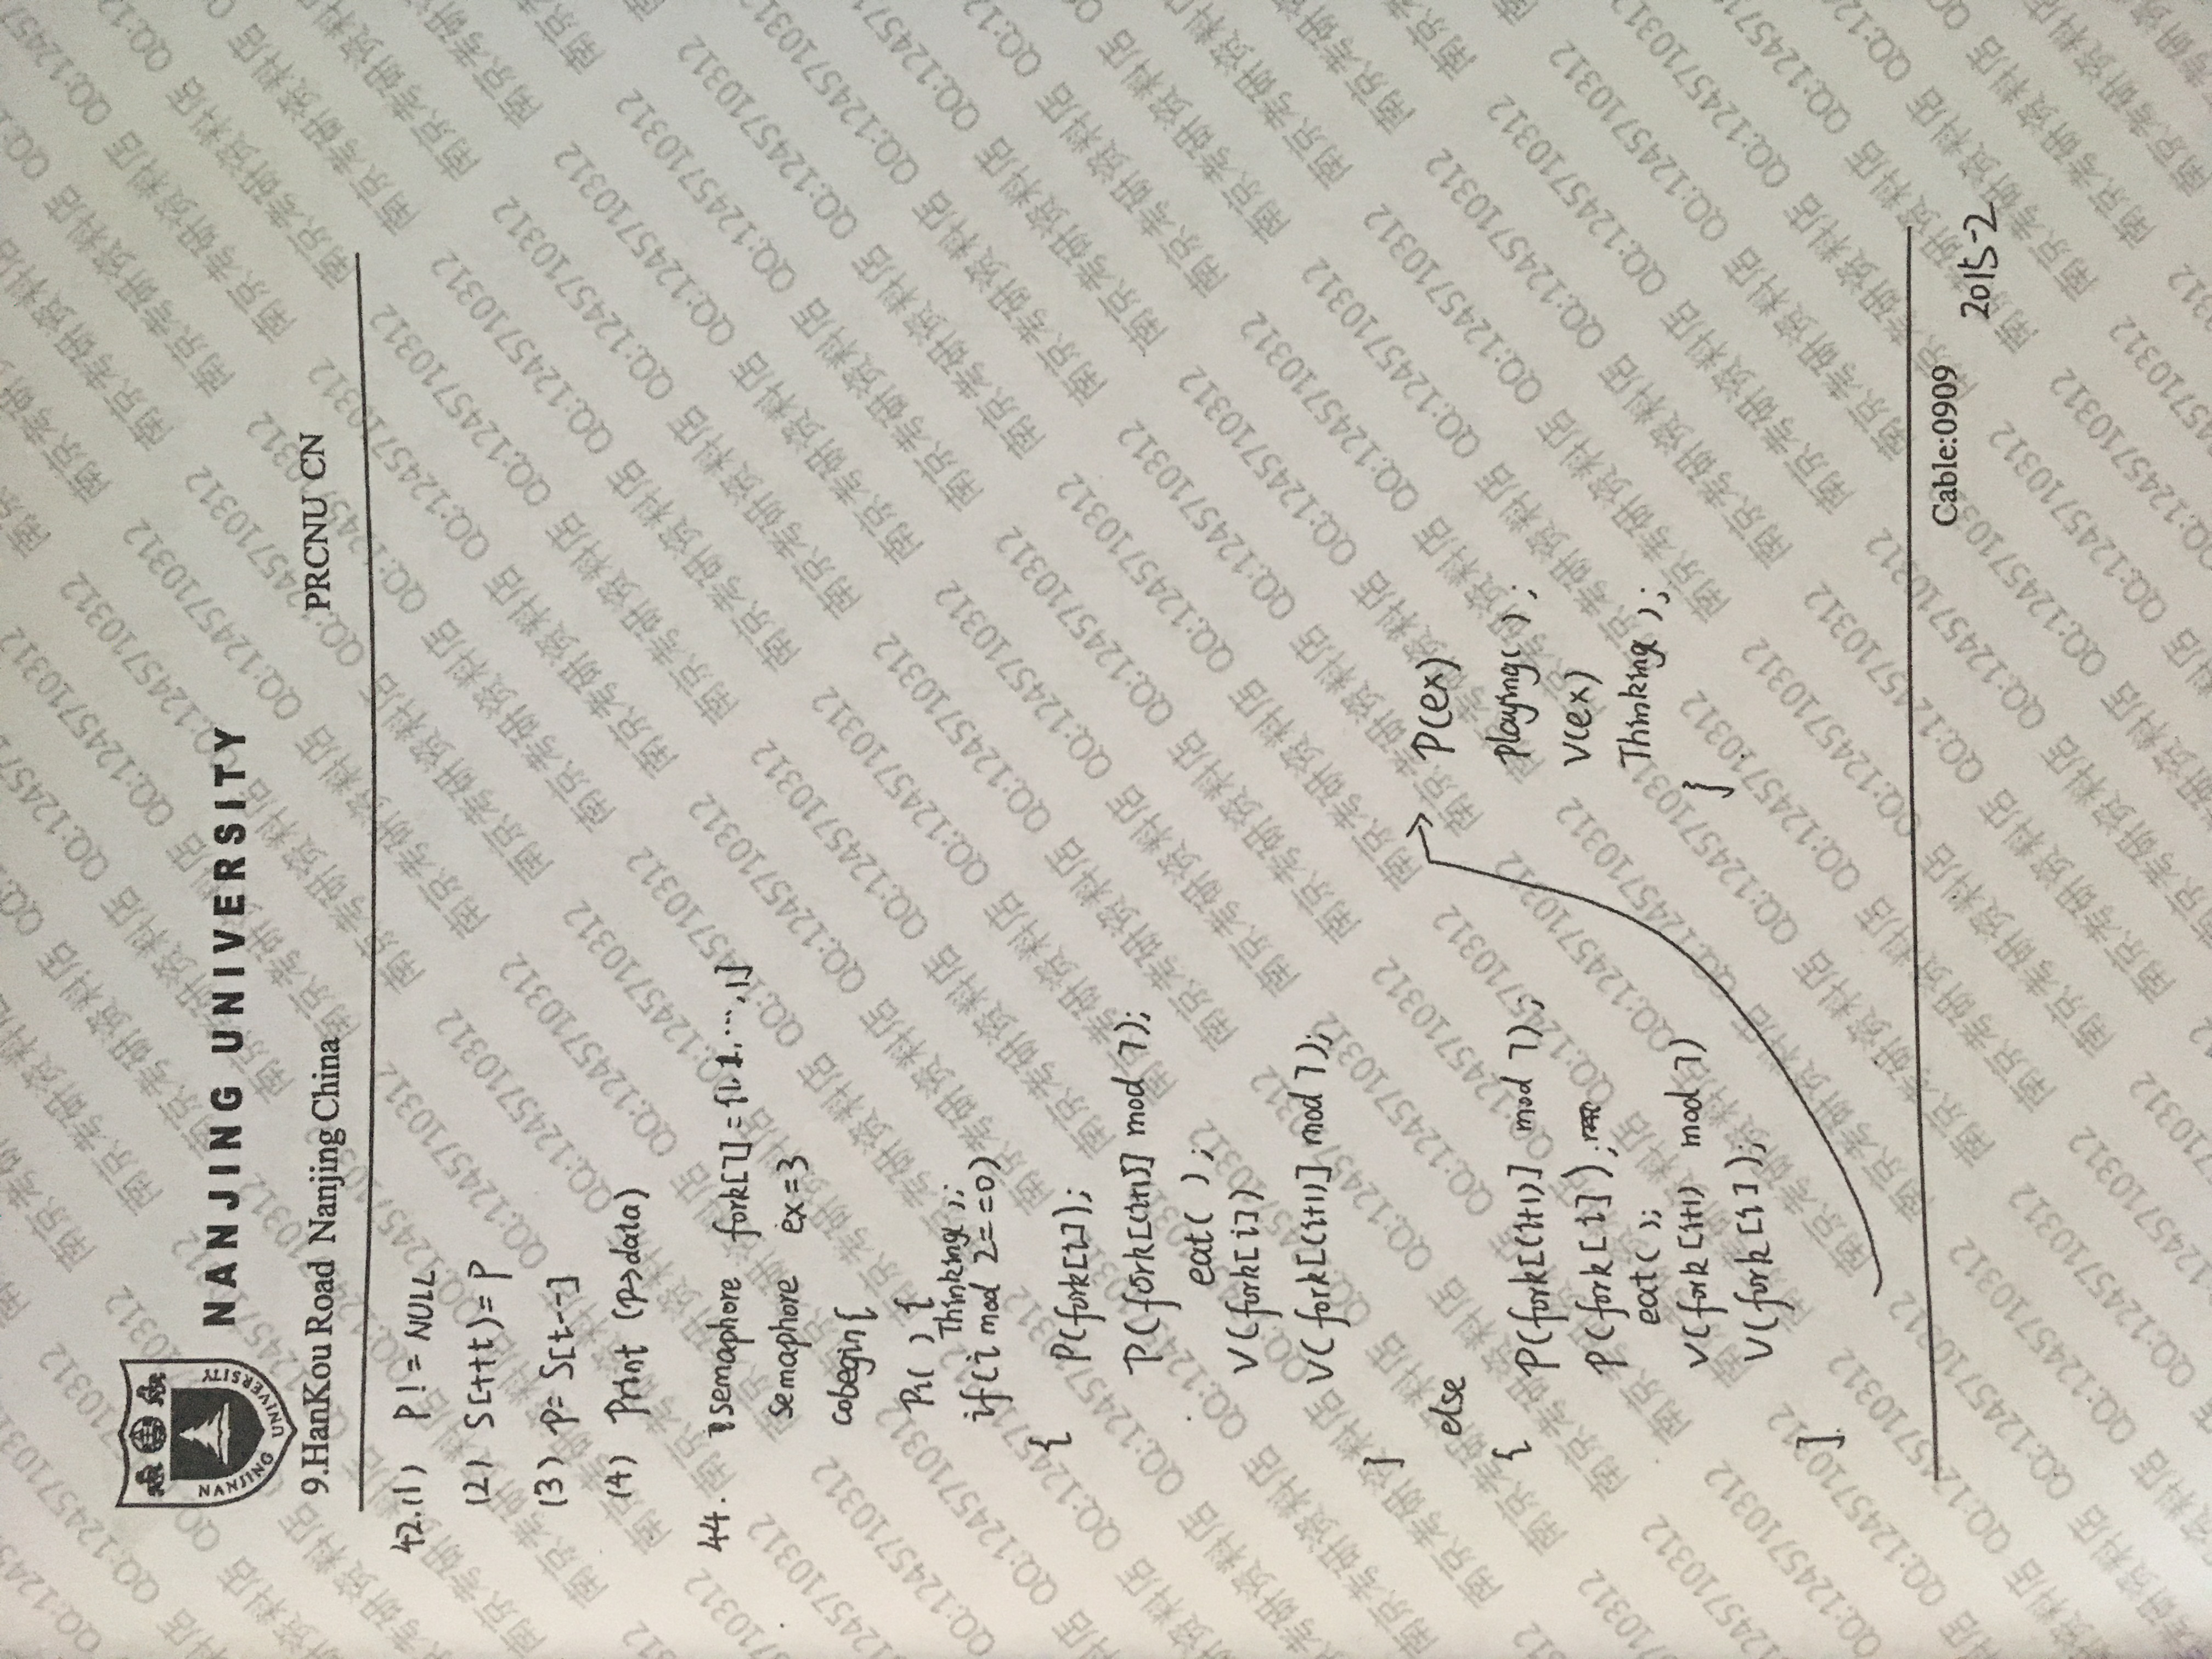 NANJING UNIVERSITY
NANJING UNIVERSITY
9.HanKou Road Nanjing China PRCNU CN
42.(1) P!=NULL
(2) S[++t)=P
(3) P=S[t--]
(4) Print (p→data)
44. semaphore fork[7]={1,1,…,1]
semaphore ex=3
cobegin{
Pi( ) {
Thinking( );
if(i mod 2==0)
{ P(fork[i]);
P(fork[(i+1)] mod 7);
eat( );
V(fork[i])
V(fork[(i+1)] mod 7);
}
else
{ P(fork[(i+1)] mod 7);
P(fork[i]);
eat( );
V(fork[i+1) mod 7)
V(fork[i]);
}
P(ex)
playing( );
V(ex)
Thinking( );
}
Cable:0909
2015-2
南京考研资料店 QQ:1245710312